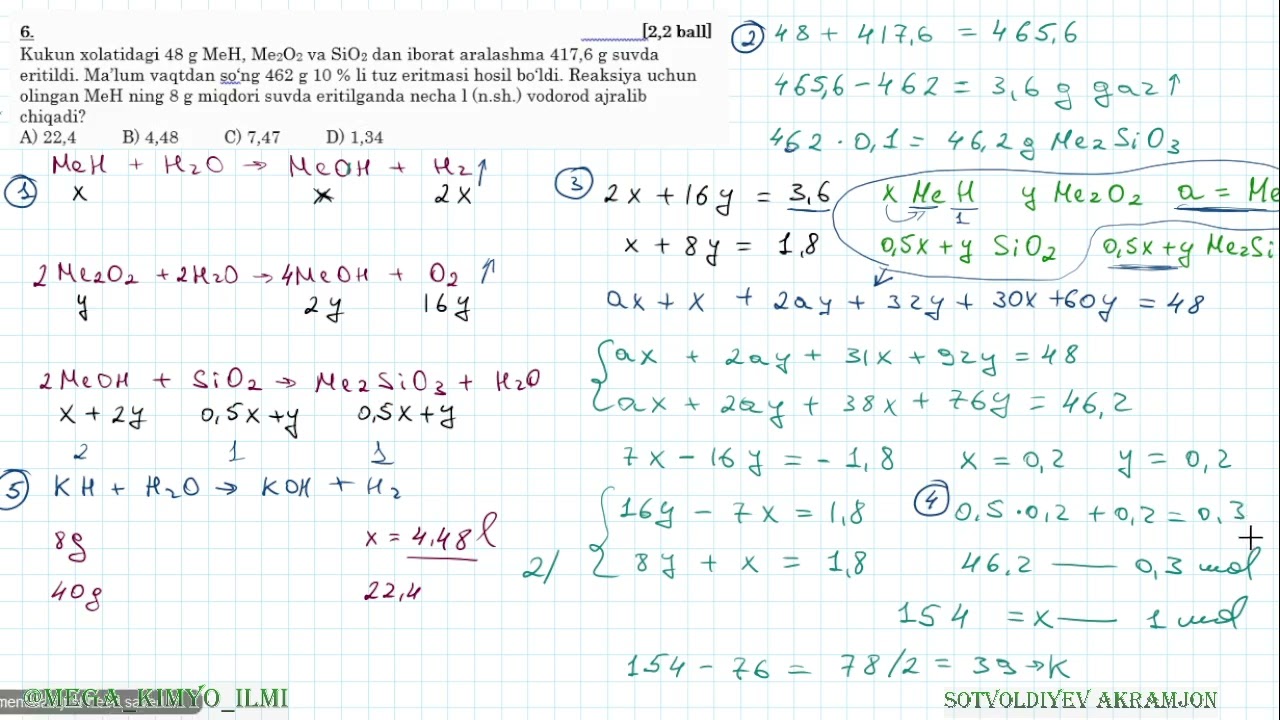 6. [2,2 ball]
Kukun xolatidagi 48 g MeH, Me₂O₂ va SiO₂ dan iborat aralashma 417,6 g suvda
eritildi. Ma'lum vaqtdan so'ng 462 g 10 % li tuz eritmasi hosil bo'ldi. Reaksiya uchun
olingan MeH ning 8 g miqdori suvda eritilganda necha l (n.sh.) vodorod ajralib
chiqadi?
A) 22,4 B) 4,48 C) 7,47 D) 1,34
1
MeH + H₂O → MeOH + H₂↑
x x 2x
2Me₂O₂ + 2H₂O → 4MeOH + O₂ ↑
y 2y 16y
2MeOH + SiO₂ → Me₂SiO₃ + H₂O
x + 2y 0,5x+y 0,5x+y
2 1 1
5 KH + H₂O → KOH + H₂
8g x = 4,48 l
40g 22,4
2 48 + 417,6 = 465,6
465,6 - 462 = 3,6 g gaz↑
462 · 0,1 = 46,2 g Me₂SiO₃
3 2x + 16y = 3,6 x MeH y Me₂O₂ a = Me
1
x + 8y = 1,8 0,5x+y SiO₂ 0,5x+y Me₂Si
ax + x + 2ay + 32y + 30x + 60y = 48
ax + 2ay + 31x + 92y = 48
ax + 2ay + 38x + 76y = 46,2
7x - 16y = - 1,8 x = 0,2 y = 0,2
16y - 7x = 1,8
2/ 8y + x = 1,8
4 0,5·0,2 + 0,2 = 0,3
46,2 — 0,3 mol
154 = x — 1 mol
154 - 76 = 78/2 = 39→K
@MEGA_KIMYO_ILMI
SOTVOLDIYEV AKRAMJON